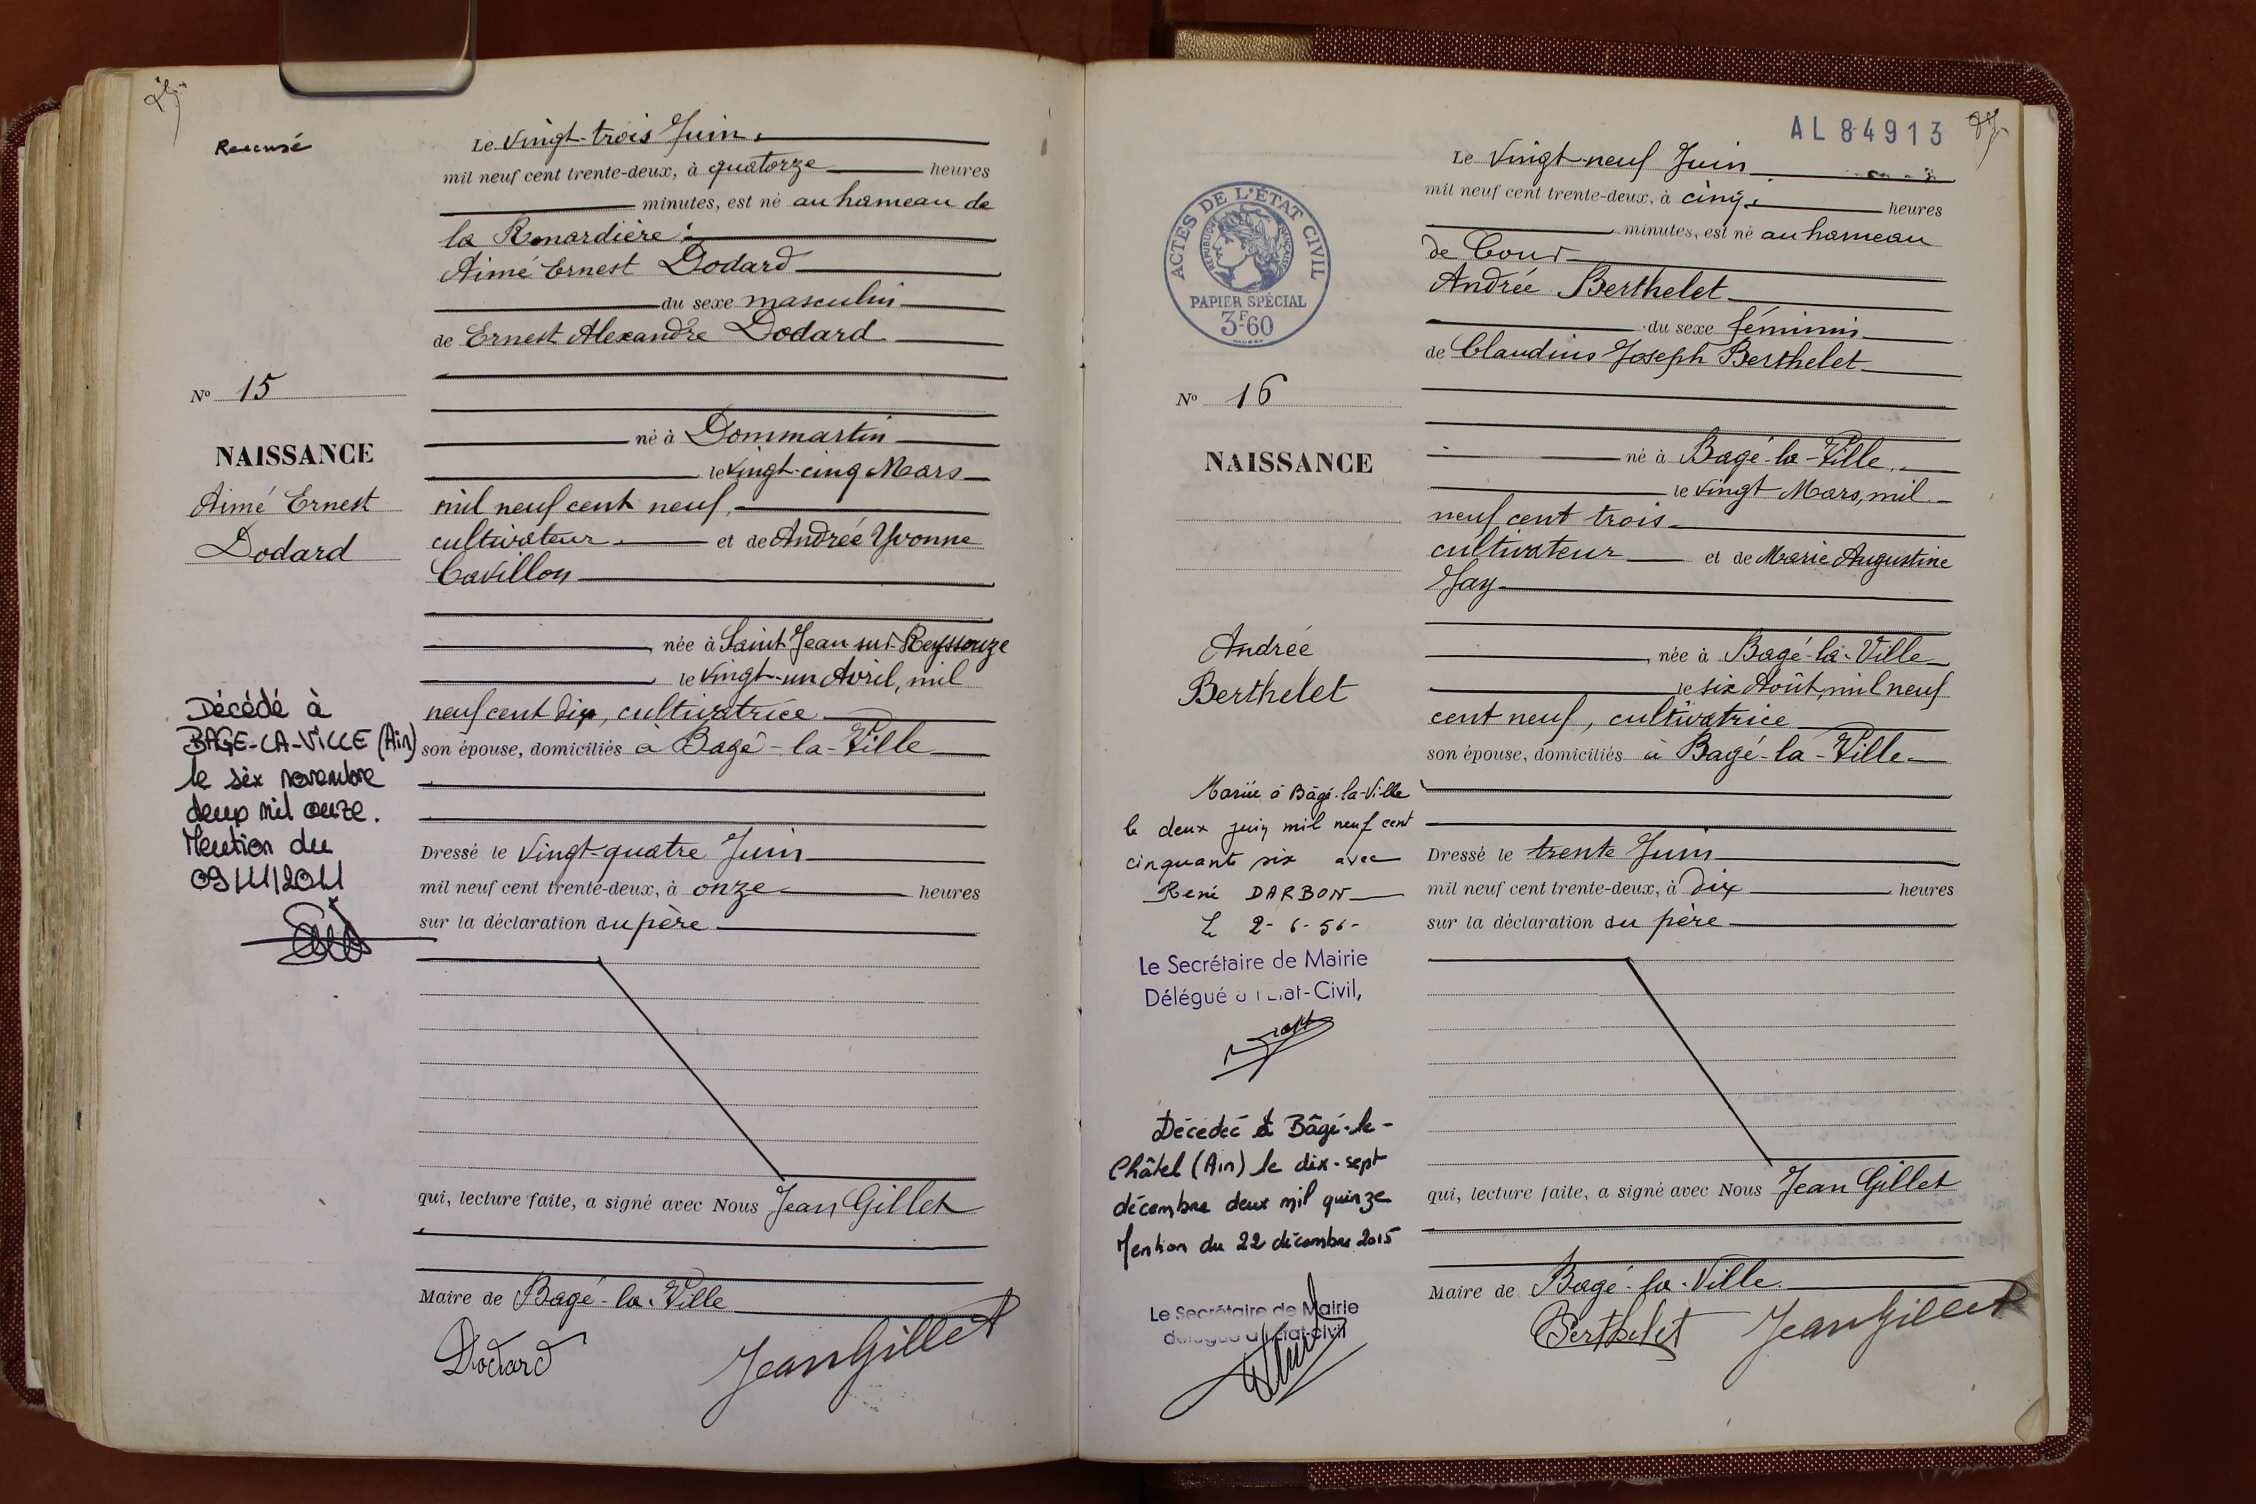 Recensé
Le vingt-trois Juin,
mil neuf cent trente-deux, à quatorze heures
minutes, est né au hameau de
la Renardière.
Aimé Ernest Dodard
du sexe masculin
de Ernest Alexandre Dodard
né à Dommartin
le vingt-cinq Mars
mil neuf cent neuf,
cultivateur et de Andrée Yvonne
Cavillon
née à Saint Jean sur Reyssouze
le vingt-un Avril, mil
neuf cent dix, cultivatrice
son épouse, domiciliés à Bagé-la-Ville
Dressé le vingt-quatre Juin
mil neuf cent trente-deux, à onze heures
sur la déclaration du père
qui, lecture faite, a signé avec Nous Jean Gillet
Maire de Bagé-la-Ville
Dodard Jean Gillet
No 15
NAISSANCE
Aimé Ernest
Dodard
Décédé à
BAGE-LA-VILLE (Ain)
le six novembre
deux mil onze.
Mention du
09/11/2011
AL 84913
ACTES DE L'ÉTAT CIVIL
RÉPUBLIQUE FRANÇAISE
PAPIER SPÉCIAL
3F60
Le vingt-neuf Juin
mil neuf cent trente-deux, à cinq, heures
minutes, est né au hameau
de Cour
Andrée Berthelet
du sexe féminin
de Claudius Joseph Berthelet
né à Bagé-la-Ville,
le vingt Mars, mil
neuf cent trois
cultivateur et de Marie Augustine
Jay
née à Bagé-la-Ville
le six Août, mil neuf
cent neuf, cultivatrice
son épouse, domiciliés à Bagé-la-Ville
Dressé le trente Juin
mil neuf cent trente-deux, à dix heures
sur la déclaration du père
qui, lecture faite, a signé avec Nous Jean Gillet
Maire de Bagé-la-Ville
Berthelet Jean Gillet
No 16
NAISSANCE
Andrée
Berthelet
Mariée à Bâgé-la-Ville
le deux juin mil neuf cent
cinquante six avec
René DARBON
Le 2-6-56-
Le Secrétaire de Mairie
Délégué à l'Etat-Civil,
Décédée à Bâgé-le-
Châtel (Ain) le dix-sept
décembre deux mil quinze
Mention du 22 décembre 2015
Le Secrétaire de Mairie
délégué à l'Etat-civil